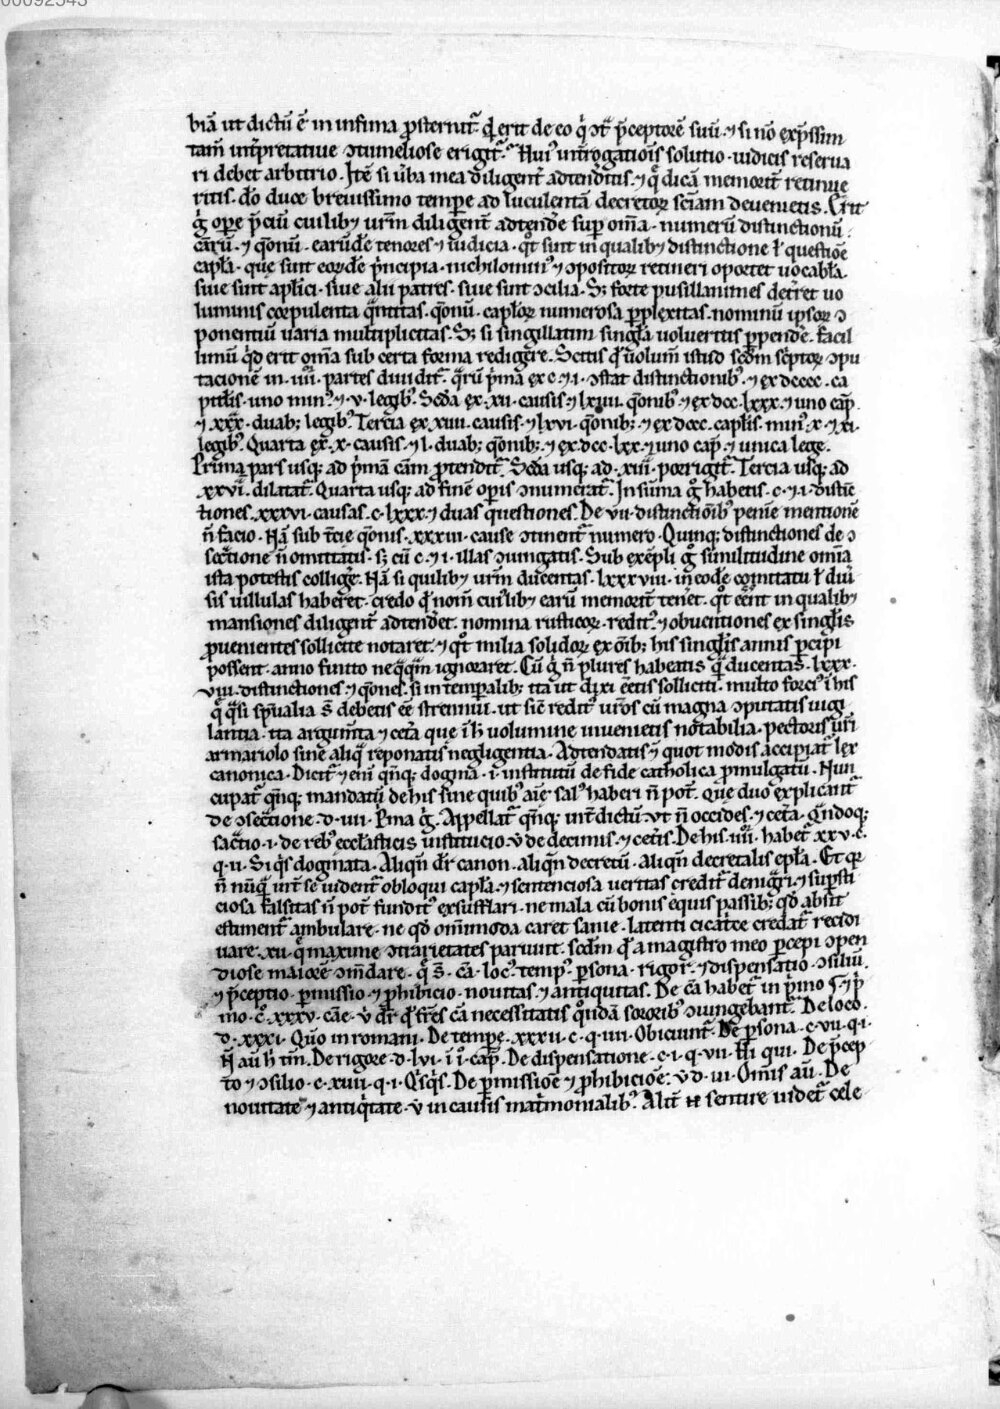 00092343
biā ut dictū ē in infima ꝓsternit᷑ q̇ erit de eo q̇ ↄt᷑ p̄ceptorē suū ⁊ si nō exp̄ssim
tam̄ int̄pretatiue ↄtumeliose erigit᷑. Hui⁹ int̄rogatiois solutio iudicis reserua
ri debet arbitrio. Itē si u̇ba mea diligent᷑ adtend̄itis ⁊ q̄ dicā memorit᷑ retinue
ritis. dō duce breuissimo tempe̱ ad luculentā decretoꝝ sc̄iam deuenietis. Erit
g̊ ope̱ p̄ciū cuilibꝫ ur̄m diligent᷑ adtende̱ sup̱ om̄ia numerū distinctionū
cārū ⁊ q̄onū earūdē tenores ⁊ iudicia q̊t sunt in qualibꝫ distinctione ł questiōe
capl̄a que sunt eoꝝdē p̄ncipia nichilomin⁹ ⁊ ↄpositoꝝ retineri oportet uocabl̄a.
siue sint apl̄ici siue alii patres siue sint ↄcilia. Sꝫ forte pusillanimes deterret uo
luminis corpulenta q̄ntitas q̄onū capl̄oꝝ numerosa ꝑplexitas nominū ipsoꝝ ↄ
ponentiū uaria multiplicitas. Sꝫ si singillatim singl̄a uolueritis ꝑpende̱ facil
limū q̊d erit om̄ia sub certa forma redigere. Scitis q̄ uolum̄ istud scdm sc̄ptoꝝ ↄpu
tacionē in .iiii. partes diuidit᷑. q̄rū p̄ma ex .c. ⁊ .i. ↄstat distinctionibꝰ. ⁊ ex dcccc. ca
pitl̄is uno min⁹ ⁊ .v. legibꝰ. Sc̄da ex .xii. causis ⁊ lxiiii. q̄onibꝰ ⁊ ex dcc. lxxx. ⁊ uno cap̱.
⁊ xxx. duabꝫ legibꝰ. Tercia ex .xiiii. causis ⁊ lxvi. q̄onibꝫ ⁊ ex dccc. capl̄is min⁹ .x. ⁊ xi.
legibꝰ. Quarta ex .x. causis ⁊ .l. duabꝫ q̄onibꝫ ⁊ ex dcc. lxx. ⁊ uno cap̱ ⁊ unica lege.
Prima pars usqꝫ ad p̄mā cām ꝓtendit᷑. Sc̄da usqꝫ ad .xiii. porrigit᷑. Tercia usqꝫ ad
xxvi. dilatat᷑. Quarta usqꝫ ad finē op̱is ↄnumerat᷑. In sūma g̊ habetis .c. ⁊ .i. distīc
tiones .xxxvi. causas .c. lxxx. ⁊ duas questiones. De vii. distinctiōibꝰ penitē mentionē
n̄ facio. Nā sub t̄cie q̄onis .xxxiii. cause ↄtinent᷑ numero. Quinqꝫ distinctiones de ↄ
secr̄tione n̄ omittatis sꝫ cū .c. ⁊ .i. illas ↄiungatis. Sub exēpli g̊ similitudine om̄ia
ista potestis collige̱. Nā si quilibꝫ ur̄m ducentas lxxxviii. in eodē comitatu ł diu̇
sis uillulas haberet. credo q̄ nom̄ cui⁹libꝫ earū memorit᷑ tenēt. q̊t eēnt in qualibꝫ
mansiones diligent᷑ adtend̄et. nomina rusticoꝝ reditꝰ ⁊ obuentiones ex singl̄is
ꝓuenientes sollicite notaret ⁊ q̊t milia solidoꝝ ex oībꝫ his singl̄is annis ꝑcipi
possent. anno finito neq̄q̄m ignoraret. Cū g̊ n̄ plures habeatis q̄ ducentas lxxx.
viii. distinctiones ⁊ q̄ones. si in temporalibꝫ ita ut dixi eētis solliciti multo forci⁹ i his
q̄ q̄si sp̄ualia s̄ debetis eē strenui. ut sic̄ reditꝰ ur̄os cū magna ↄputatis uigi
lantia ita argum̄ta ⁊ cet̄a que i h̊ volumine inuenietis notabilia pectoris ur̄i
armariolo sine aliq̄ reponatis negligentia. Adtendatis ⁊ quot modis accipiat᷑ lex
canonica. Dicit᷑ eni q̄nqꝫ dogma .i. institutū de fide catholica ꝓmulgatū. Nun
cupat᷑ q̄nqꝫ mandatū de his sine quibꝰ aīe sal⁹ haberi n̄ pot᷑. Que duo explicant᷑
de ↄsecr̄tione .d. iiii. Pͥma g̊. Appellat᷑ q̄nqꝫ int᷑dictū ut n̄ occides ⁊ cet̄a. Q̄ndoqꝫ
sac̄tio .i. de rebꝰ eccl̄asticis institucio v̇ de decimis ⁊ cet̄is. De his .iiii. habet᷑ xxv. c.
q. ii. Siq̊s dogmata. Aliqn̄ dr̄ canon. aliqn̄ decretū. aliqn̄ decretalis epl̄a. Et qꝛ
n̄ nūq̄ int᷑ se uident᷑ obloqui capl̄a ⁊ sentenciosa ueritas credit᷑ denigri ⁊ sup̱sti
ciosa falsitas n̄ pot᷑ fundit⁹ exsufflari ne mala cū bonis equis passibꝫ q̊d absit
estiment᷑ ambulare. ne q̊d om̄imoda caret sanie latenti cicatrice credat᷑ recidi
uare. xii. q̄ maxime ↄtrarietates pariunt scdm q̄ a magistro meo ꝑcepi ↄpen
diose maiorē ↄm̄dare q̄ s̄. cā. loc⁹. temp⁹. ꝑsona. rigor. ⁊ dispensatio. ↄsiliū
⁊ p̄ceptio. ꝑmissio. ⁊ ꝓhibicio. nouitas. ⁊ antiquitas. De cā habet᷑ in p̄mo ⁊ p̄
mo .c. xxxv. cāe. v̇ dr̄ q̄ fr̄es cā necessitatis q̊ndā sororibꝰ ↄiungebant᷑. De loco.
d. xxxi. Qūo in romani. De tempe̱. xxxii. c. q. iiii. Obiciunt᷑. De ꝑsona. c. vii. q. i.
H̄ aū h tm̄. De rigore. d. lvi. i i̊. cap̱. De dispensatione. c. i. q. vii. Ni qui. De p̄cep
to ⁊ ↄsilio. c. xiiii. q. i. Q̊sq̊s. De ꝑmissiōe ⁊ ꝓhibiciōe. v̇ d. iii. Om̄is aū. De
nouitate ⁊ antiq̊tate. v̇ in causis mat̄monialibꝰ. Alit᷑ ⁊ sentire uidet᷑ cele